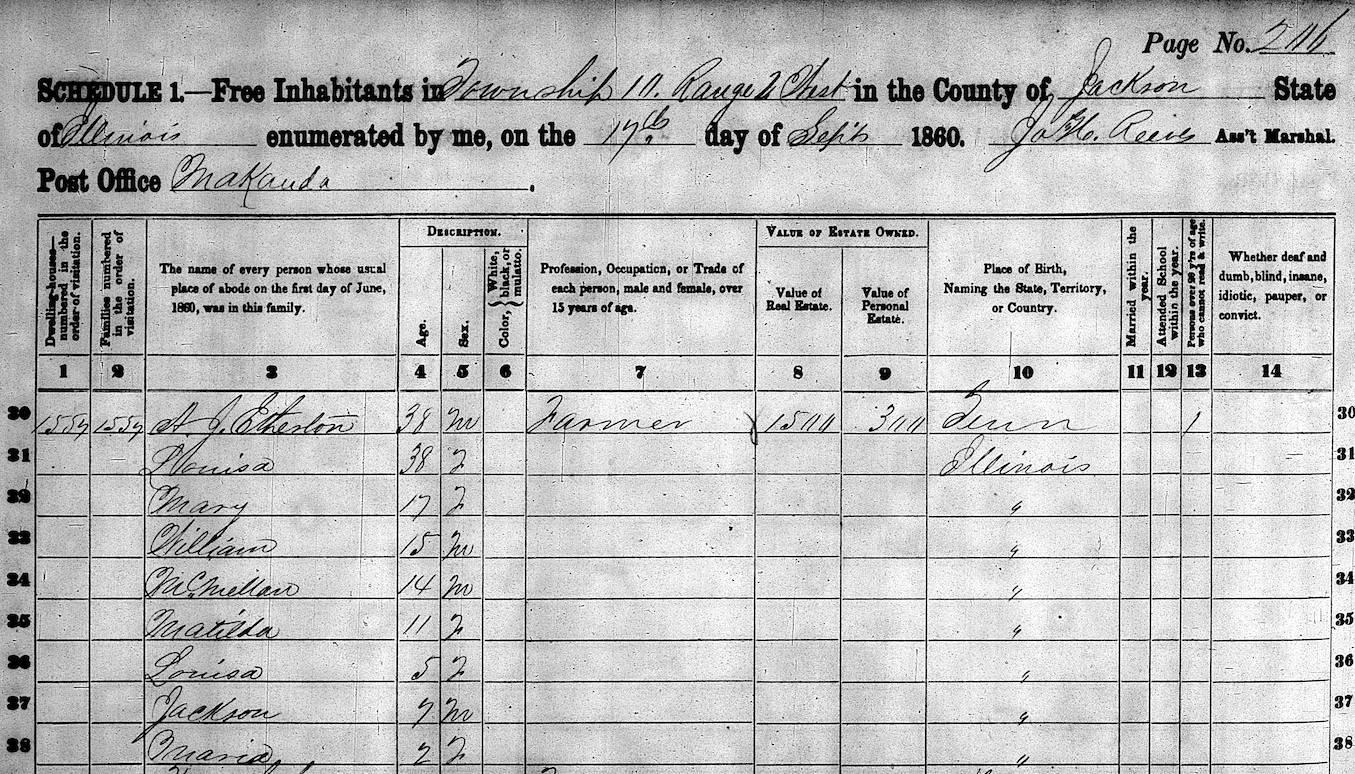 Page No. 206
SCHEDULE 1.—Free Inhabitants in Township 10. Range 2 West in the County of Jackson State
of Illinois enumerated by me, on the 17th day of Sept 1860. Jo H. Reeves Ass't Marshal.
Post Office Makanda.
DESCRIPTION. VALUE OF ESTATE OWNED.
Dwelling-houses—numbered in the order of visitation. Families numbered in the order of visitation. The name of every person whose usual place of abode on the first day of June, 1860, was in this family. Age. Sex. Color, { White, black, or mulatto. Profession, Occupation, or Trade of each person, male and female, over 15 years of age. Value of Real Estate. Value of Personal Estate. Place of Birth, Naming the State, Territory, or Country. Married within the year. Attended School within the year. Persons over 20 y'rs of age who cannot read & write. Whether deaf and dumb, blind, insane, idiotic, pauper, or convict.
1 2 3 4 5 6 7 8 9 10 11 12 13 14
30 1559 1559 A. J. Etherton 38 m Farmer 1500 300 Tenn / 30
31 Louisa 38 f Illinois 31
32 Mary 17 f " 32
33 William 15 m " 33
34 McMellan 14 m " 34
35 Matilda 11 f " 35
36 Louisa 5 f " 36
37 Jackson 7 m " 37
38 Maria 2 f " 38